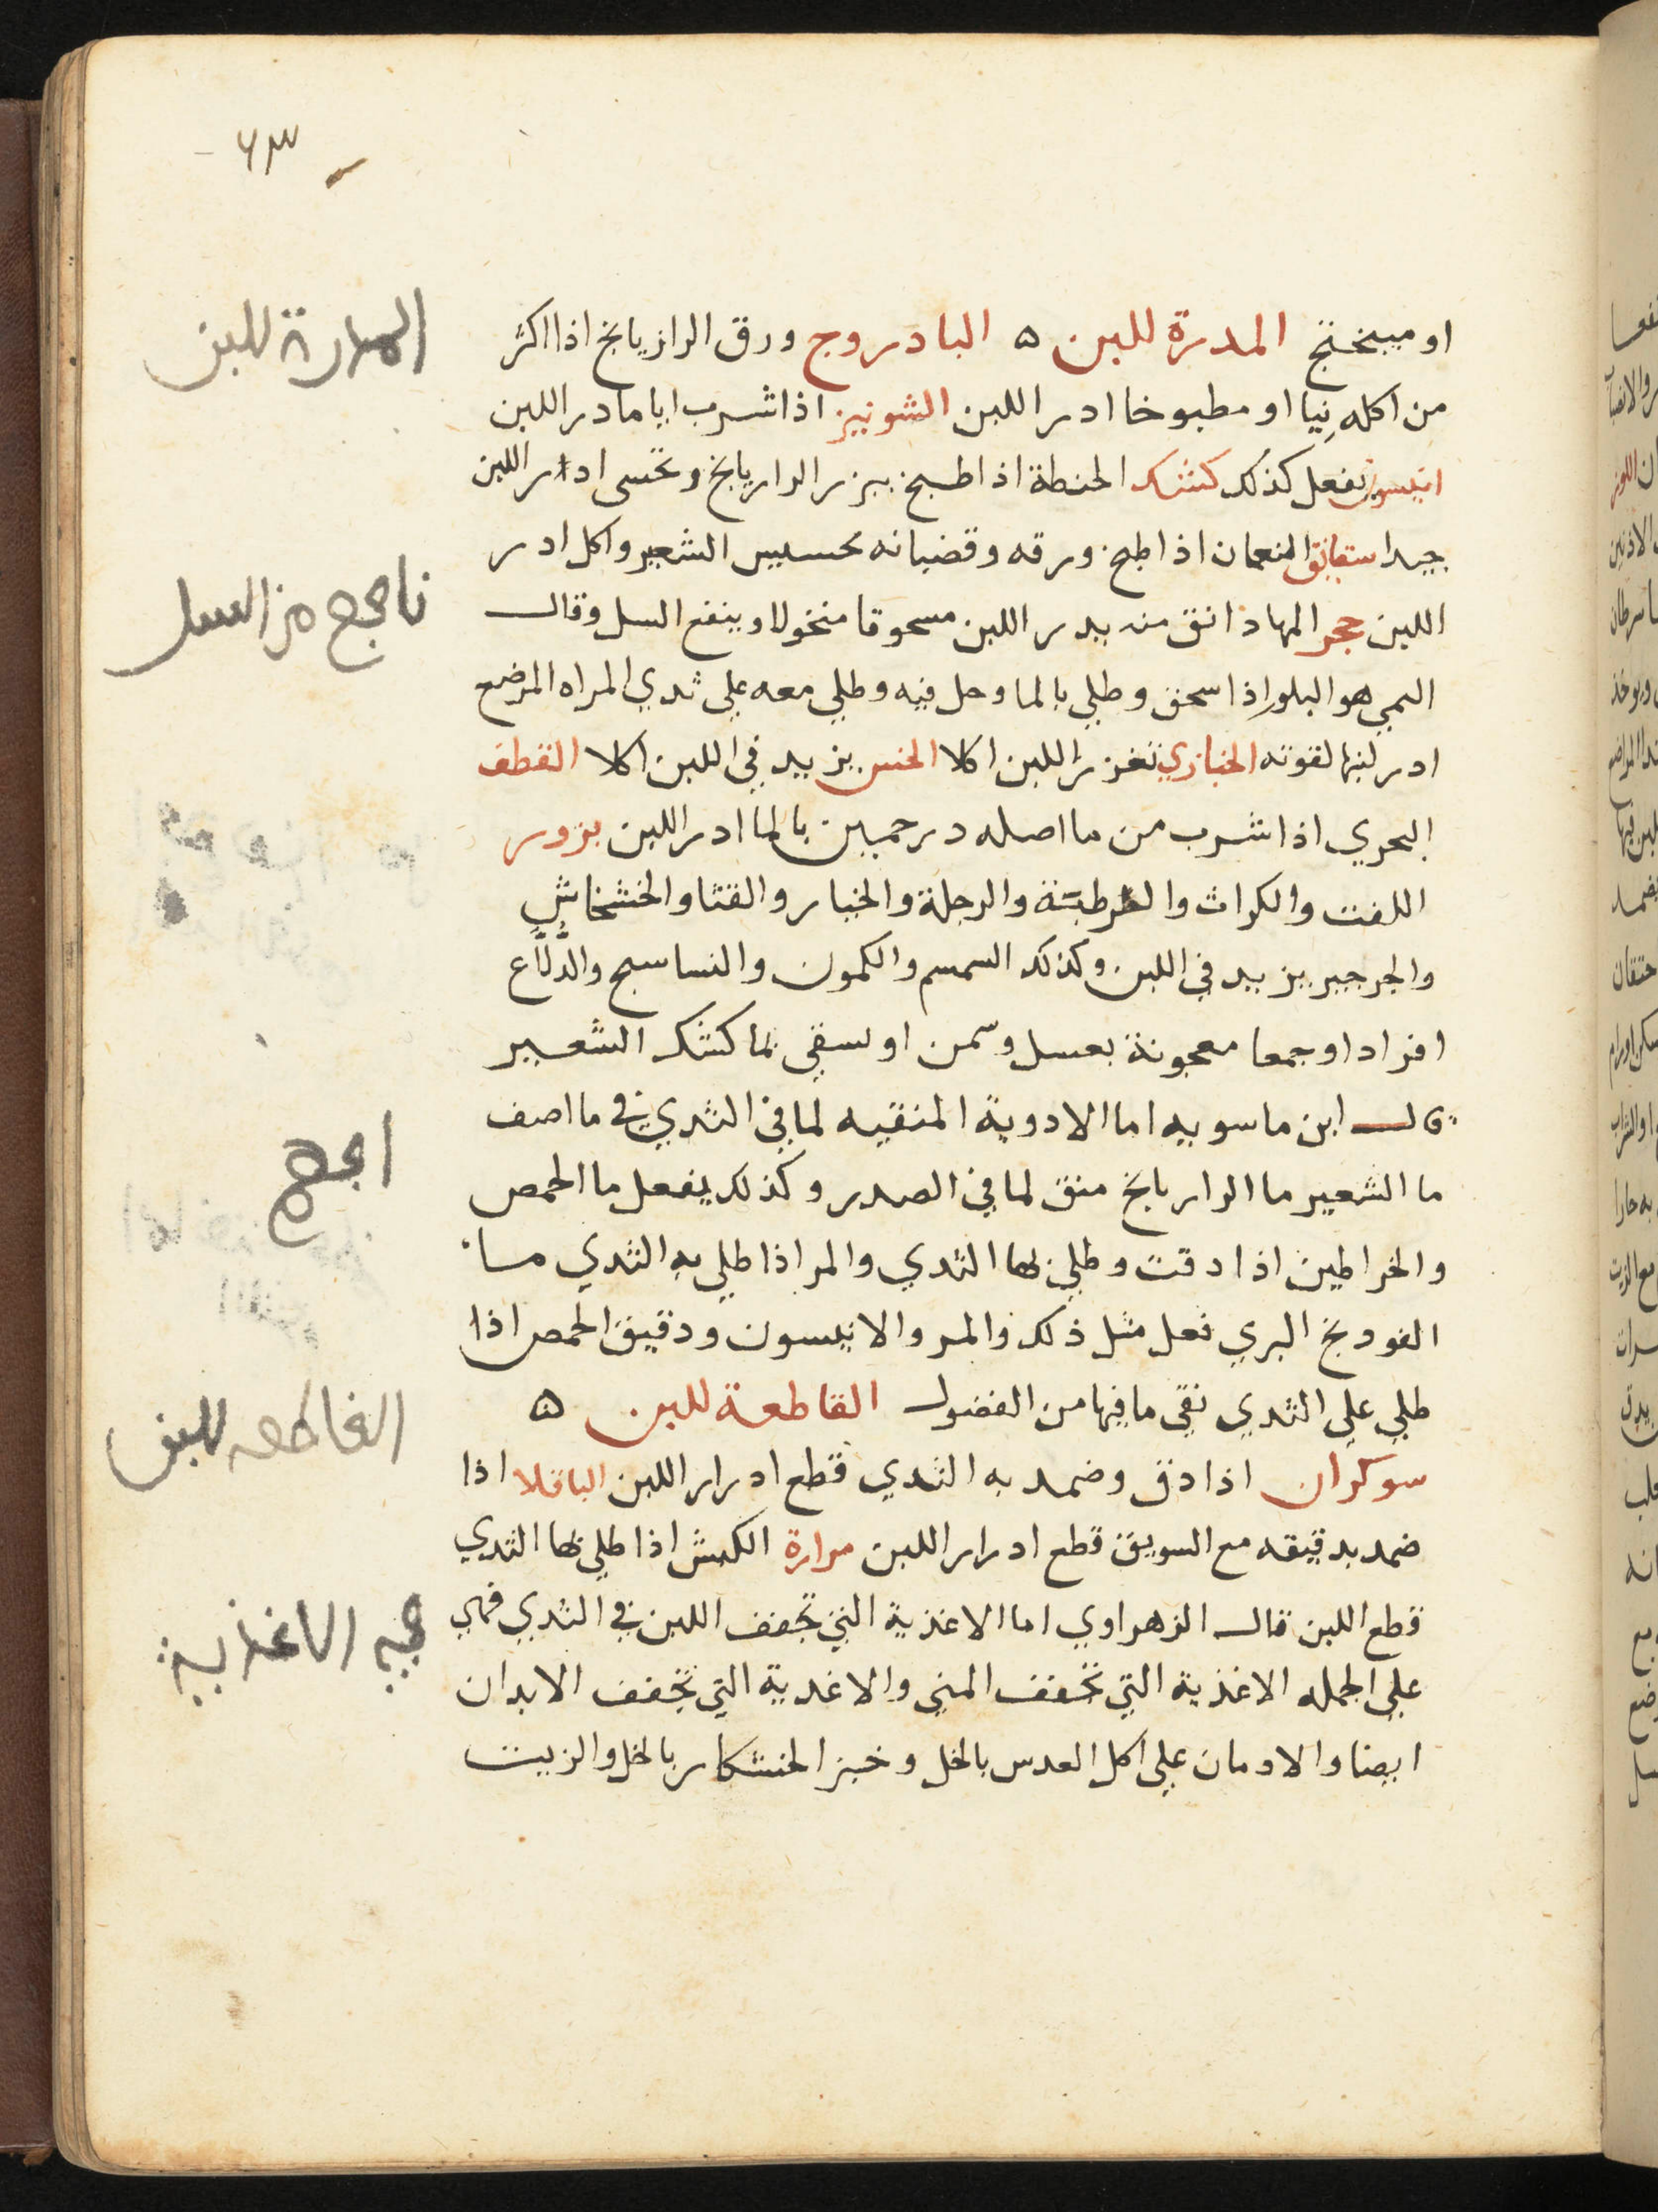 ٦٣
او ميبختج المدرة للبن ه البادروج ورق الرازيانج اذا اكثر
من اكله نِيا او مطبوخا ادر اللبن الشونيز اذا شرب اياما در اللبن
انيسون يفعل كذلك كشك الحنطة اذا طبخ ببزر الرازيانج وتحسى ادر اللبن
جيدا شقايق النعمان اذا طبخ ورقه وقضبانه بحسيس الشعير واكل ادر
اللبن حجر المها دانق منه يدر اللبن مسحوقا منخولا وينفع السل وقال
هو البلور اذا سحق وطلي بالما وحل فيه وطلي معه علي ثدي المراه المرضع
ادر لبنها لقوته الخبازي تغزر اللبن اكلا الخس يزيد في اللبن اكلا القطف
البحري اذا شرب من ما اصله درخمين بالما ادر اللبن بزور
اللفت والكراث والرطبة والرجلة والخيار والقثا والخشخاش
والجرجير يزيد في اللبن وكذلك السمسم والكمون والبسابسج والدَّلاَّع
افراد او جمعا معجونة بعسل وسمن او يسقي بما كشك الشعير
قال ابن ماسويه اما الادوية المنقيه لما في الثدي في ما اصف
ما الشعير ما الرازيانج منق لما في الصدر وكذلك يفعل ما الحمص
والخراطين اذا دقت وطلي بها الثدي والمر اذا طلي به الثدي
الفودنج البري فعل مثل ذلك والمر والانيسون ودقيق الحمص اذا
طلي علي الثدي نقي ما فيها من الفضول القاطعة للبن ه
سوكران اذا دق وضمد به الثدي قطع ادرار اللبن الباقلا اذا
ضمد بدقيقه مع السويق قطع ادرار اللبن مرارة الكبش اذا طلي بها الثدي
قطع اللبن قال الزهراوي اما الاغذية التي تجفف اللبن في الثدي فهي
علي الجمله الاغذية التي تجفف المني والاغدية التي تجفف الابدان
ايضا والادمان علي اكل العدس بالخل وخبز الخشكار بالخل والزيت
المدارة للبن
ناجح من السل
القاطعه للبن
الاغذيية